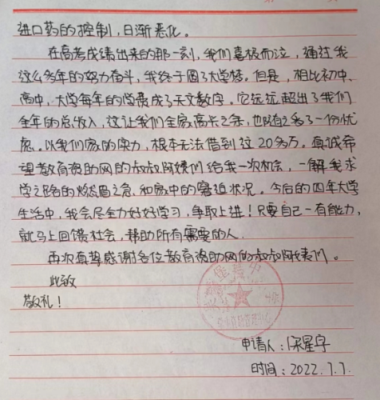 进口药的控制,日渐恶化。
在高考成绩出来的那一刻,我们喜极而泣,通过我
这么多年的努力奋斗,我终于圆了大学梦。但是,相比初中、
高中,大学每年的学费成了天文数字。它远远超出了我们
全年的总收入,这让我们全家高兴之余,也陷入了一份忧
愁。以我们家的实力,根本无法借到这20多万。真诚希
望教育资助网的叔叔阿姨们给我一次机会,一解我求
学之路的燃眉之急和家中的窘迫状况。今后的四年大学
生活中,我会尽全力好好学习,争取上进!只要自己一有能力,
就马上回馈社会,帮助所有需要的人。
再次真挚感谢各位教育资助网的叔叔阿姨们。
此致
敬礼!
申请人:宋星宇
时间:2022.7.7.